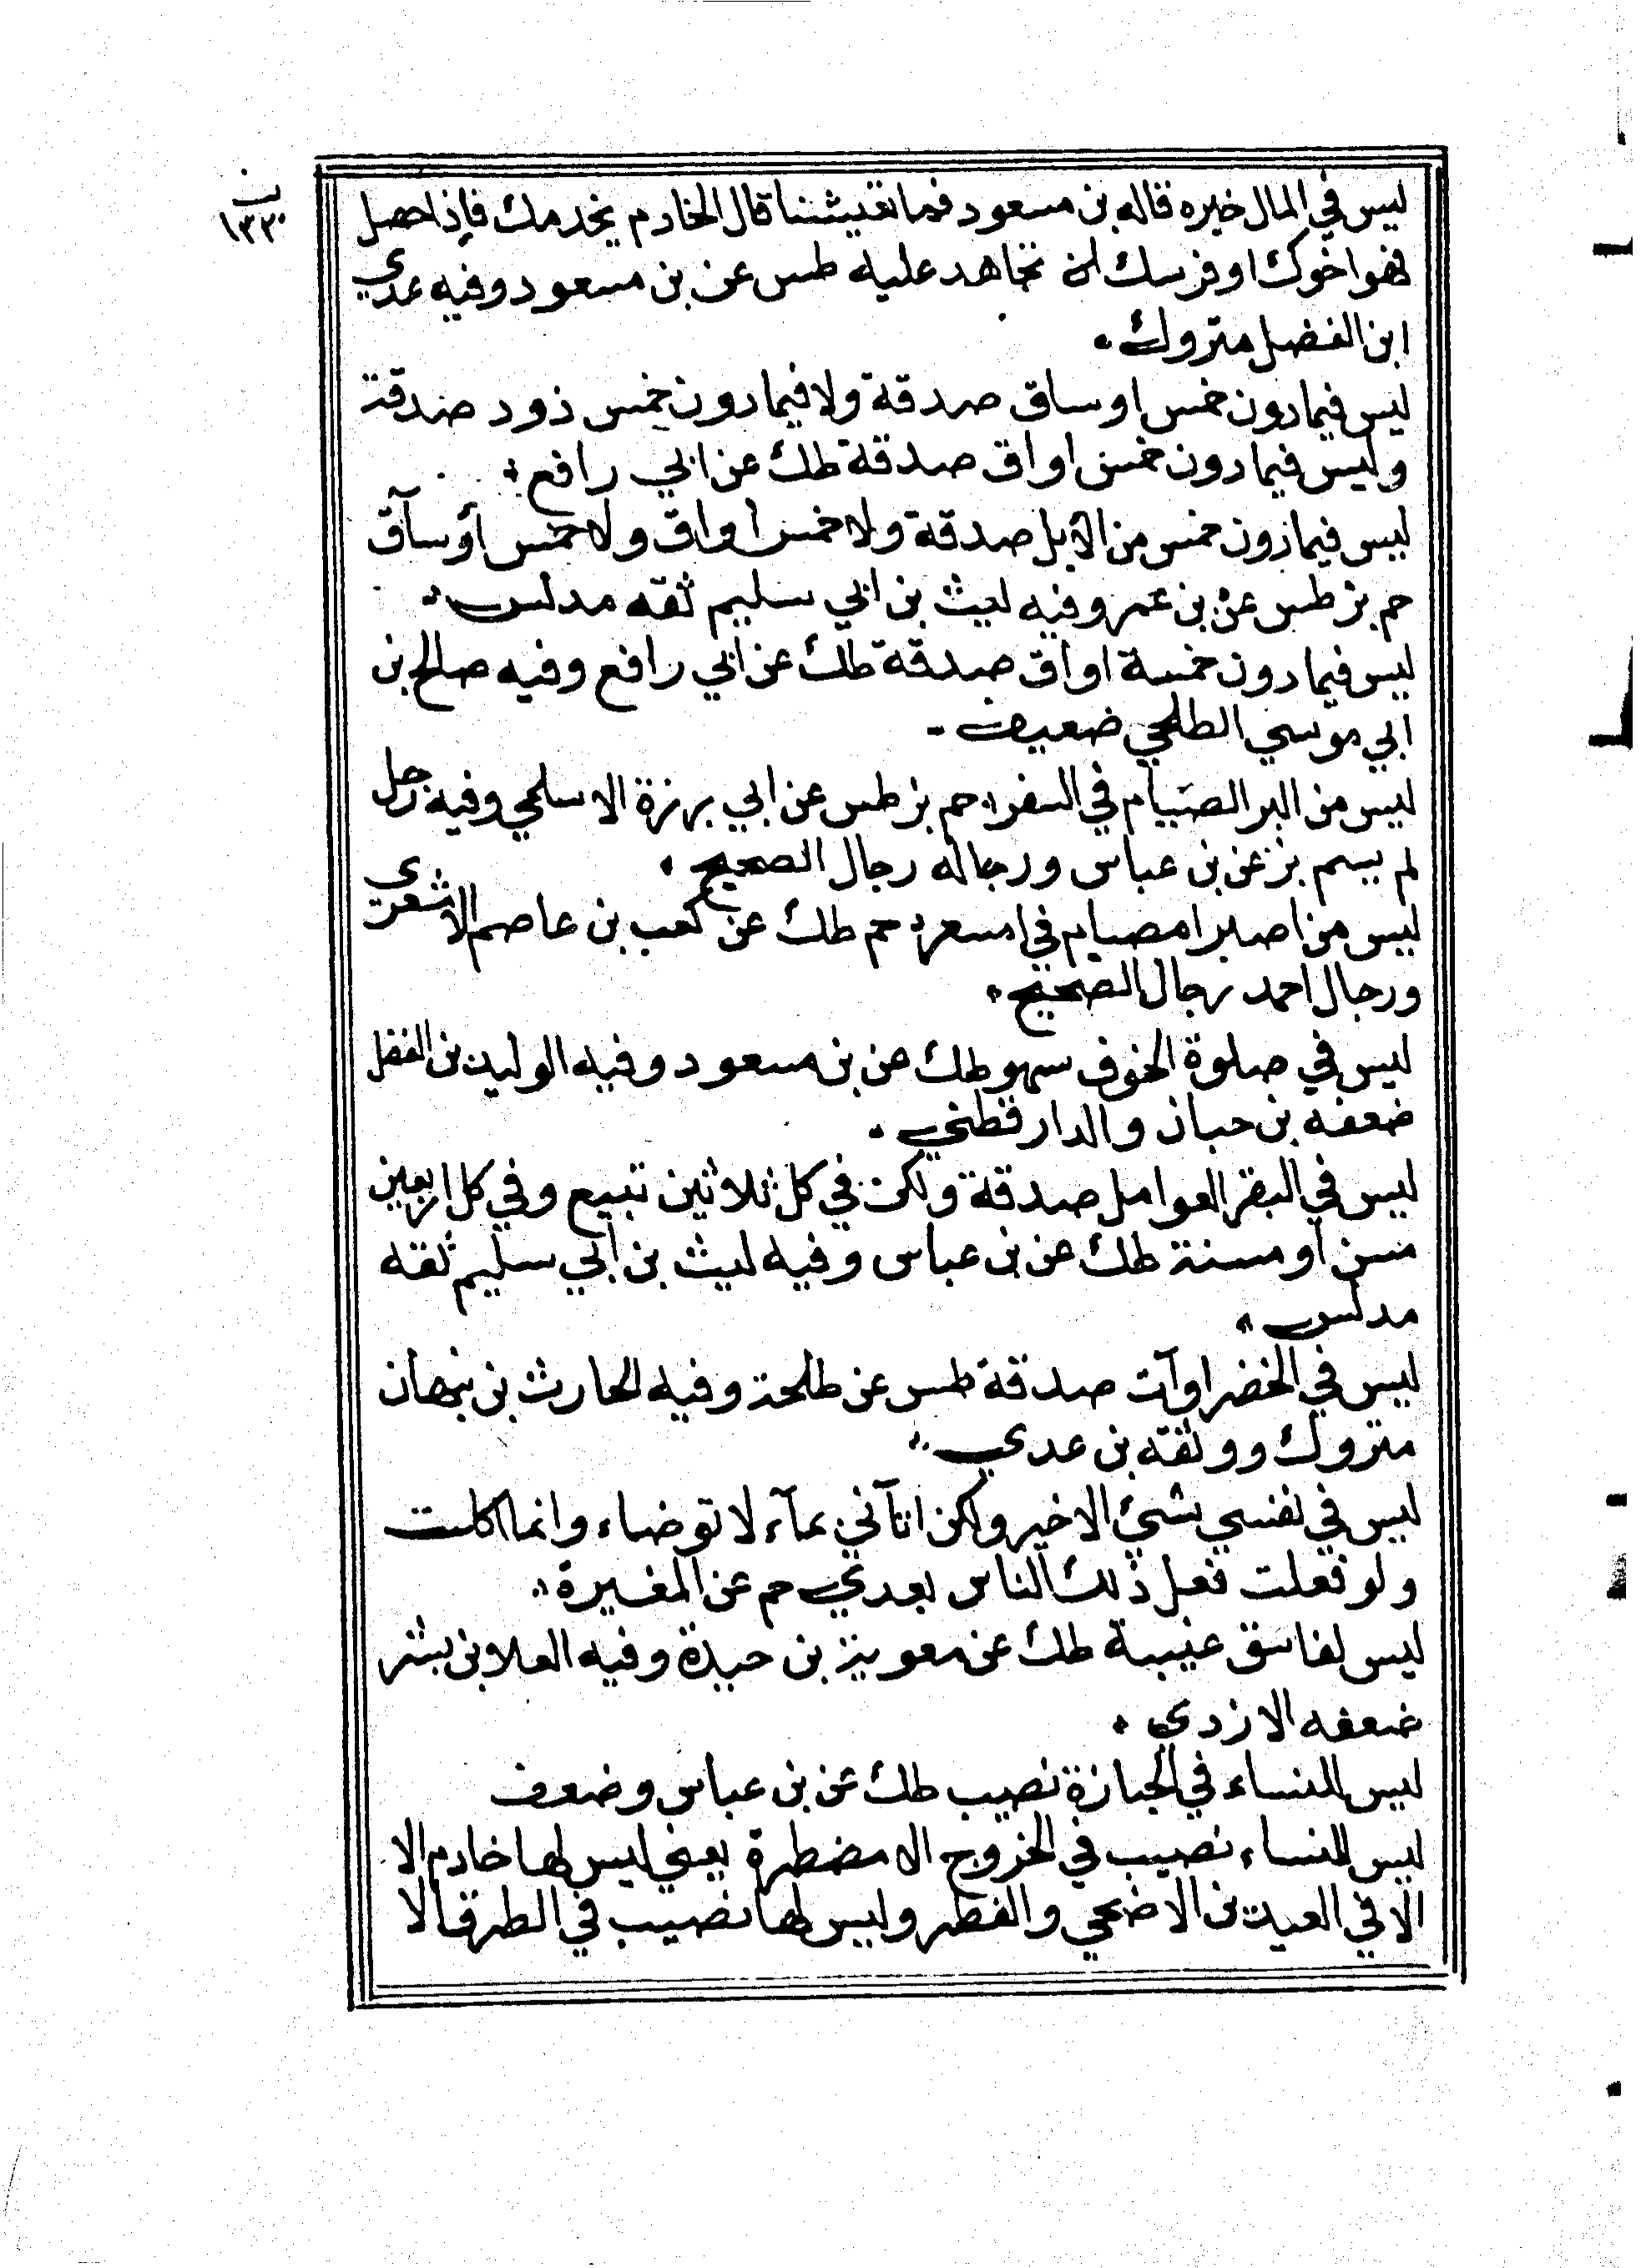 ليس في المال خيره قاله بن مسعود فما تعيشنا قال الخادم يخدمك فإذا صل
فهو اخوك او فرسك لن تجاهد عليه طس عن بن مسعود وفيه عدي
ابن الفضل متروك
ليس فيما دون خمس اوساق صدقة ولا فيما دون خمس ذود صدقة
وليس فيما دون خمس اواق صدقة طك عن ابي رافع
ليس فيما دون خمس من الابل صدقة ولا خمس اواق ولا خمس أوساق
حم بز طس عن بن عمر وفيه ليث بن ابي سليم ثقه مدلس
ليس فيما دون خمسة اواق صدقة طك عن ابي رافع وفيه صالح بن
ابي موسي الطلحي ضعيف
ليس من البر الصيام في السفر حم بز طس عن ابي برزة الاسلمي وفيه رجل
لم يسم بز عن بن عباس ورجاله رجال الصحيح
ليس من امبر امصيام في امسعر حم طك عن كعب بن عاصم الاشعري
ورجال احمد رجال الصحيح
ليس في صلوة الخوف سهو طك عن بن مسعود وفيه الوليد بن الفضل
ضعفه بن حبان والدارقطني
ليس في البقر العوامل صدقة ولكن في كل ثلاثين تبيع وفي كل اربعين
مسن او مسنة طك عن بن عباس وفيه ليث بن ابي سليم ثقه
مدلس
ليس في الخضراوآت صدقة طس عن طلحة وفيه الحارث بن نبهان
متروك ووثقه بن عدي
ليس في نفسي شئ الا خير ولكن اتآني بمآء لا توضاء وانما اكلت
ولو فعلت فعل ذلك الناس بعدي حم عن المغيرة
ليس لفاسق غيبة طك عن معوية بن حيدة وفيه العلا بن بشر
ضعفه الازدي
ليس للنساء في الجنازة نصيب طك عن بن عباس وضعف
ليس للنساء نصيب في الخروج الا مضطرة يعني ليس لها خادم الا
الا في العيدين الاضحي والفطر وليس لها نصيب في الطرق الا
١٣٣٠